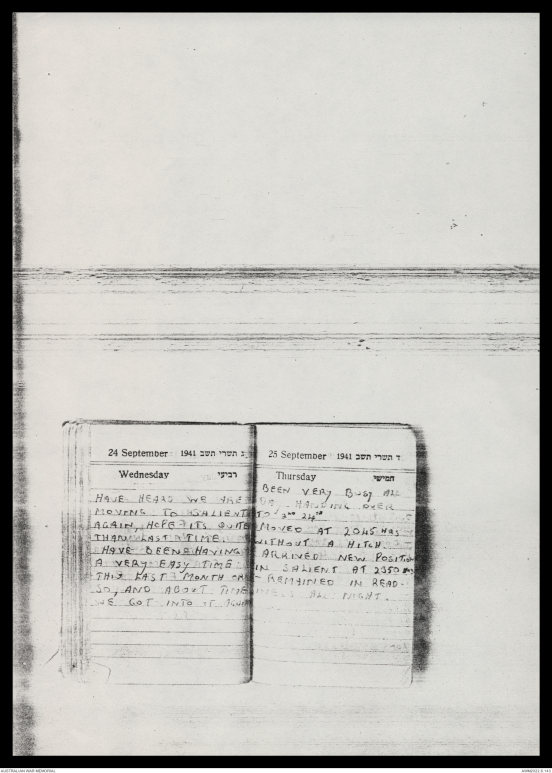 24 September 1941 ג תשרי תשב
Wednesday רביעי
HAVE HEARD WE ARE
MOVING TO SALIENT
AGAIN, HOPE ITS QUITER
THAN LAST TIME.
HAVE BEEN HAVING
A VERY EASY TIME
THIS LAST MONTH OR
SO, AND ABOUT TIME
WE GOT INTO IT AGAIN
25 September 1941 ד תשרי תשב
Thursday חמישי
BEEN VERY BUSY ALL
DAY HANDING OVER
TO 2ND 24TH
MOVED AT 2045 HRS
WITHOUT A HITCH
ARRIVED NEW POSITION
IN SALIENT AT 2350 HRS
REMAINED IN READ-
INESS ALL NIGHT.
AUSTRALIAN WAR MEMORIAL